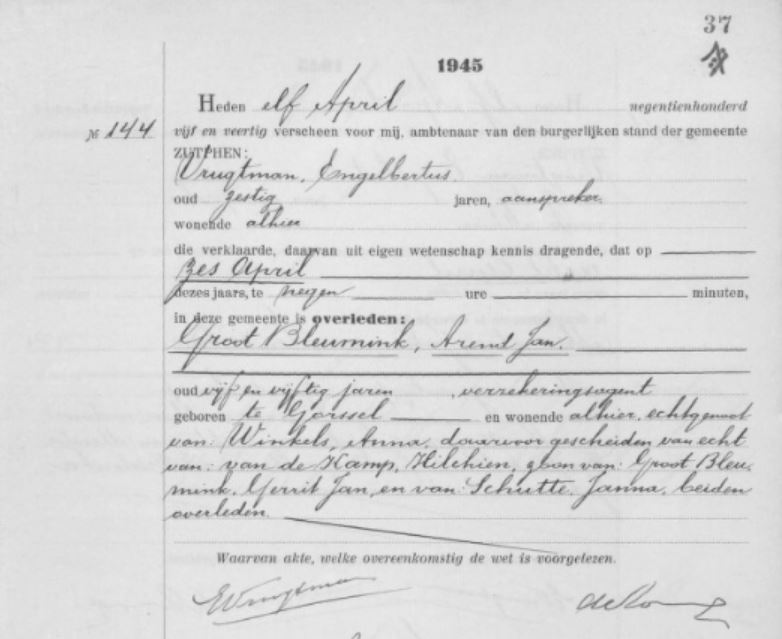 37
1945
Heden elf April negentienhonderd
№ 144 vijf en veertig verscheen voor mij, ambtenaar van den burgerlijken stand der gemeente
ZUTPHEN:
Vrugtman, Engelbertus.
oud zestig jaren, aanspreker.
wonende alhier
die verklaarde, daarvan uit eigen wetenschap kennis dragende, dat op
zes April
dezes jaars, te negen ure minuten,
in deze gemeente is overleden:
Groot Bleumink, Arend Jan.
oud vijf en vijftig jaren, verzekeringsagent
geboren te Gorssel en wonende alhier, echtgenoot
van: Winkels, Anna, daarvoor gescheiden van echt
van: van de Kamp, Hilchien, zoon van: Groot Bleu-
mink, Gerrit Jan, en van: Schutte, Janna, beiden
overleden.
Waarvan akte, welke overeenkomstig de wet is voorgelezen.
EVrugtman